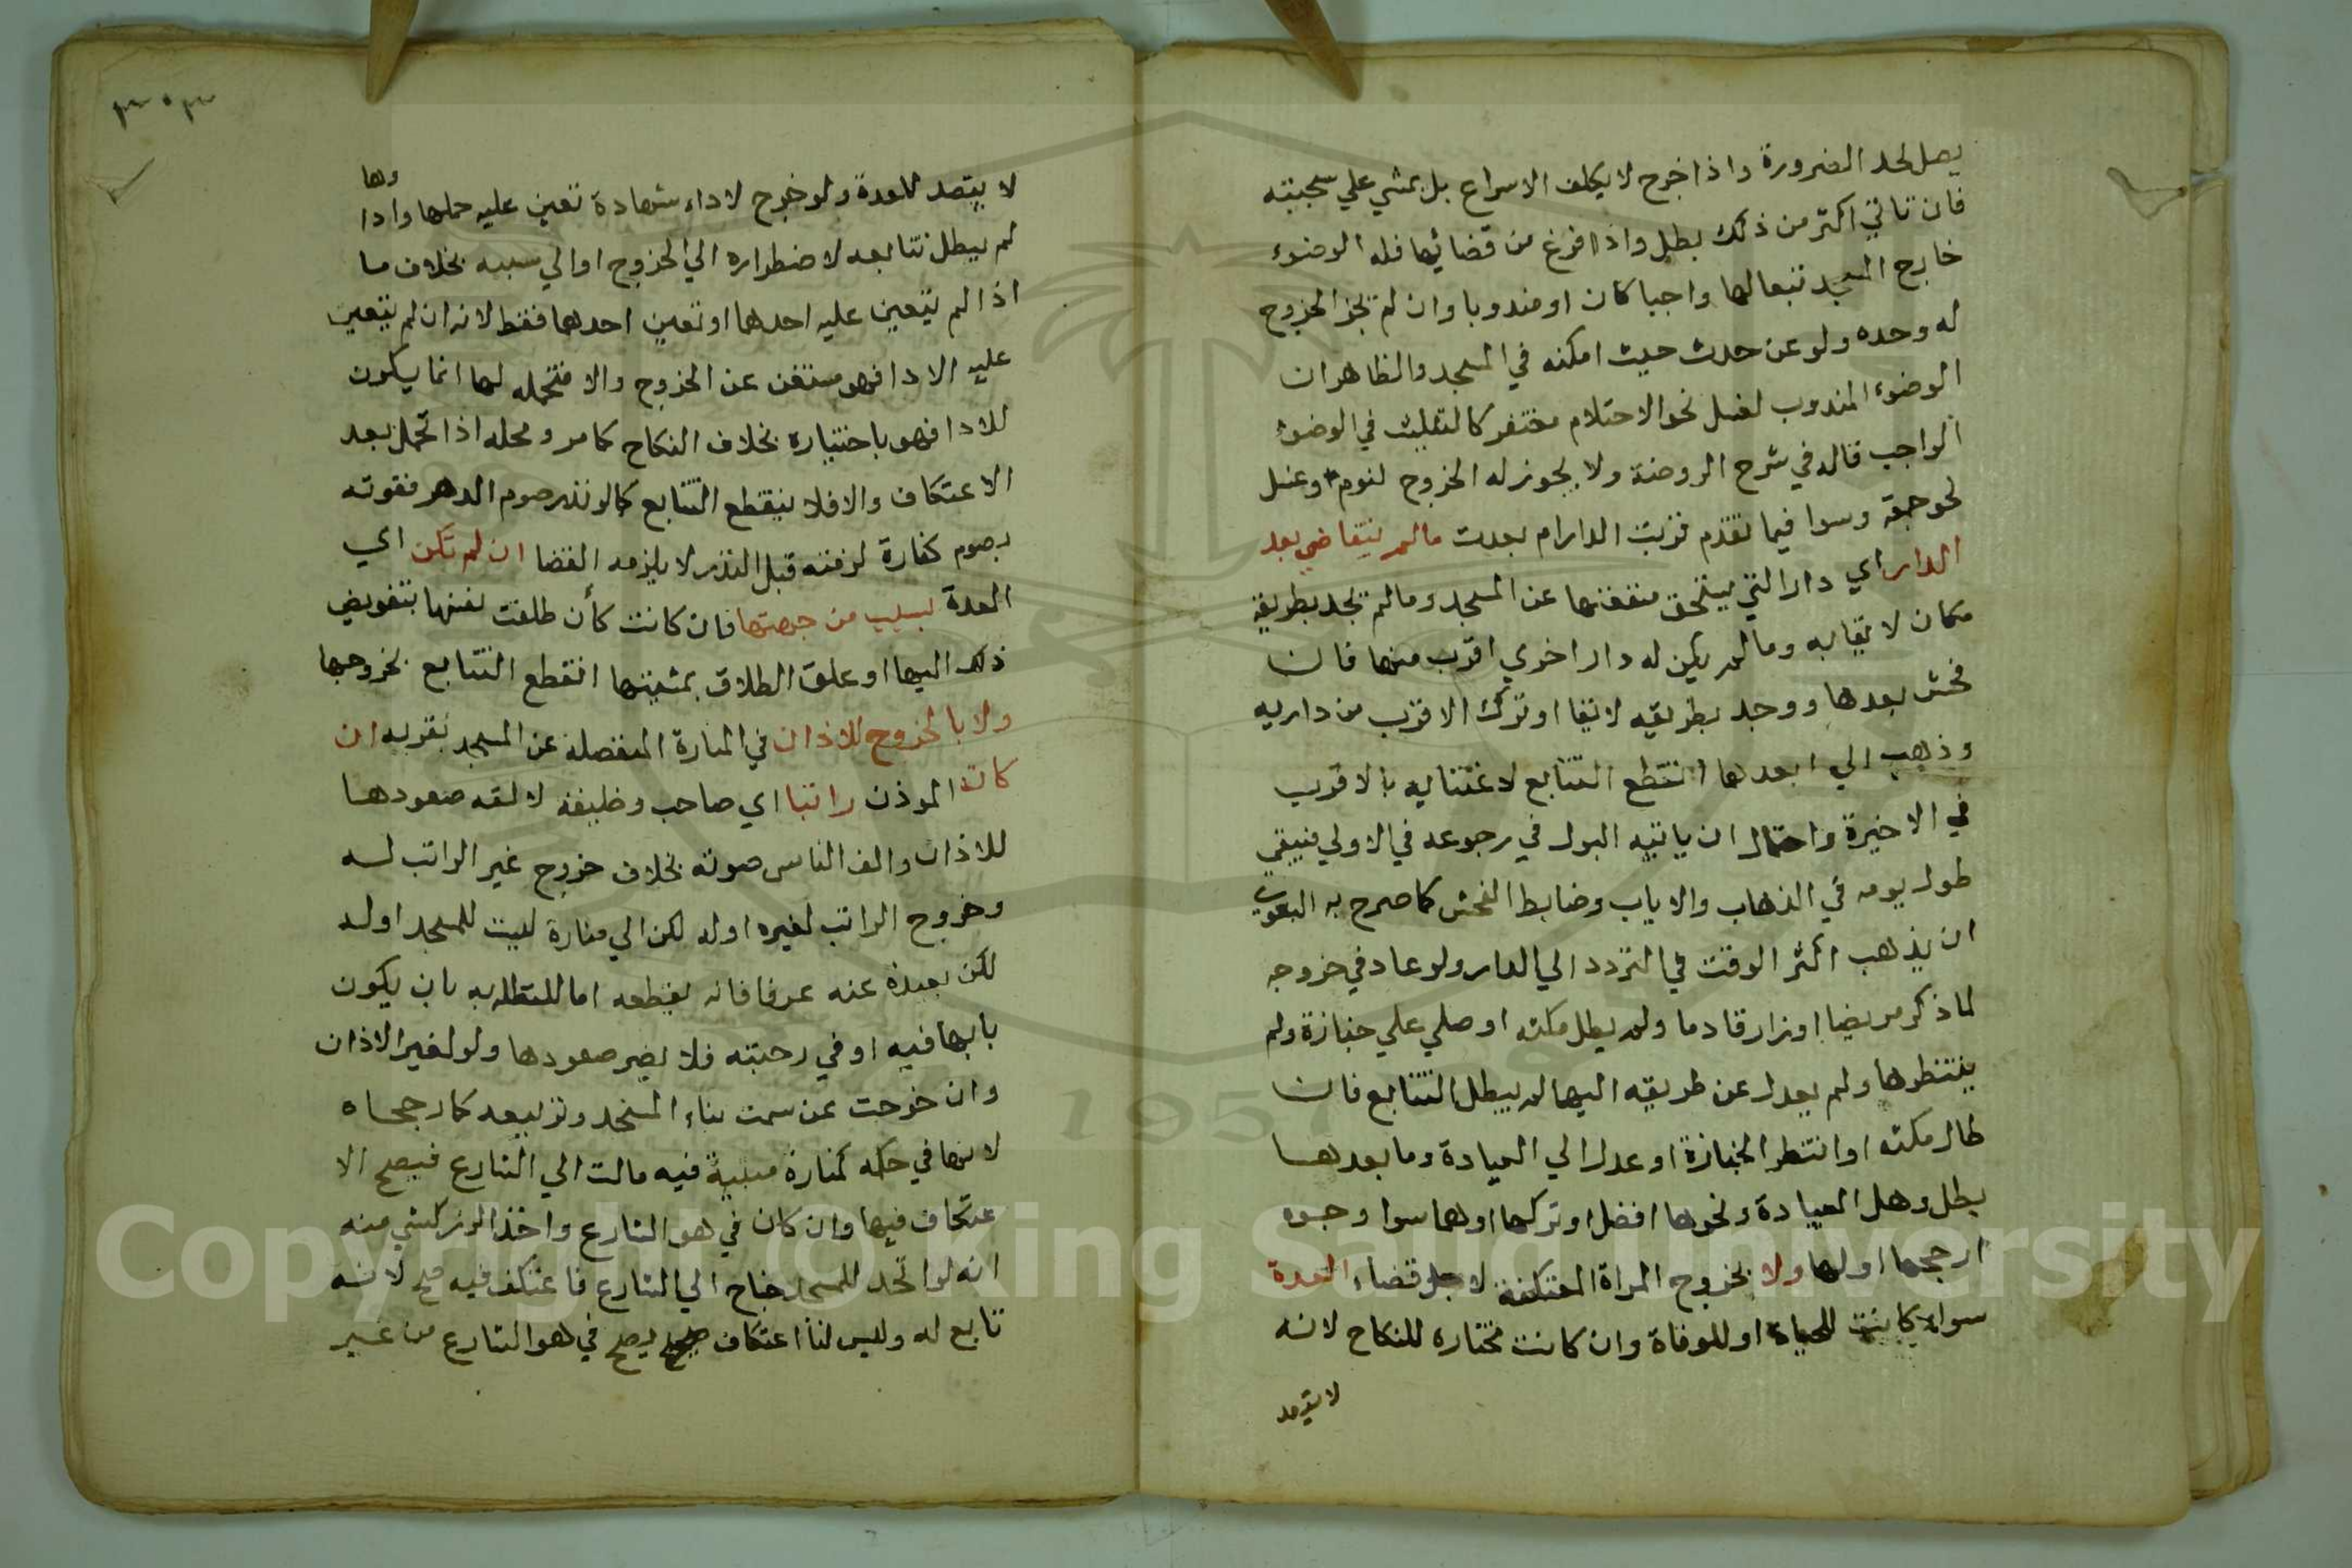 يصل لحد الضرورة واذا خرج لا يكلف الاسراع بل يمشي علي سجيته
فان تاني اكثر من ذلك بطل واذا فرغ من قضائها فله الوضوء
خارج المسجد تبعا لها واجبا كان او مندوبا وان لم يجز الخروج
له وحده ولو عن حدث حيث امكنه في المسجد والظاهر ان
الوضوء المندوب لغسل نحو الاحتلام مغتفر كالتثليث في الوضوء
الواجب قاله في شرح الروضة ولا يجوز له الخروج لنوم وغسل
نحو جمعة وسوا فيما تقدم قربت الدار ام بعدت مالم يتفاحش بعد
الدار اي دار التي يستحق منفعتها عن المسجد ومالم يجد بطريقه
مكان لايقا به ومالم يكن له دار اخري اقرب منها فان
فحش بعدها ووجد بطريقه لايقا او ترك الاقرب من داريه
وذهب الي ابعدهما انقطع التتابع لاغتنايه بالاقرب
في الاخيرة واحتمال ان ياتيه البول في رجوعه في الاولي فيبقي
طول يومه في الذهاب والاياب وضابط الفحش كما صرح به البغوي
ان يذهب اكثر الوقت في التردد الي الدار ولو عاد في خروجه
لما ذكر مريضا او زار قادما ولم يطل مكثه او صلي علي جنازة ولم
ينتظرها ولم يعدل عن طريقه اليها لم يبطل التتابع فان
طال مكثه او انتظر الجنازة او عدل الي العيادة وما بعدها
بطل وهل العيادة ونحوها افضل او تركها او هما سوا وجوه
ارجحها اولها ولا بخروج المراة المعتكفة لاجل قضاء العدة
سواء كانت للحياة او للوفاة وان كانت مختاره للنكاح لانه
لا يتصد
٣٠٣
وها
لا يتصد للعدة ولو خرج لاداء شهادة تعين عليه حملها وادا
لم يبطل تتابعه لاضطراره الي الخروج او الي سببه بخلاف ما
اذا لم يتعين عليه احدهما او تعين احدهما فقط لانه ان لم يتعين
عليه الادا فهو مستغن عن الخروج والا فتحمله لها انما يكون
للادا فهو باختياره بخلاف النكاح كما مر ومحله اذا تحمل بعد
الاعتكاف والا فلا ينقطع التتابع كما لو نذر صوم الدهر ففوته
بصوم كفارة لزمته قبل النذر لا يلزمه القضا ان لم تكن اي
العدة بسبب من جهتها فان كانت كأن طلقت نفسها بتفويض
ذلك اليها او علق الطلاق بمشيتها انقطع التتابع بخروجها
ولا بالخروج للاذان في المنارة المنفصلة عن المسجد بقربه ان
كان الموذن راتبا اي صاحب وظيفة لالفه صعودها
للاذان والف الناس صوته بخلاف خروج غير الراتب له
وخروج الراتب لغيره اوله لكن الي منارة ليست للمسجد اوله
لكن بعيدة عنه عرفا فانه يقطعه اما المتصله به بان يكون
بابها فيه او في رحبته فلا يضر صعودها ولو لغير الاذان
وان خرجت عن سمت بناء المسجد وتربيعه كما رجحاه
لانها في حكمه كمنارة مبنية فيه مالت الي الشارع فيصح الا
عتكاف فيها وان كان في هو الشارع واخذ الزركشي منه
انه لو اتخذ للمسجد جناح الي الشارع فاعتكف فيه صح لانه
تابع له وليس لنا اعتكاف صحيح يصح في هو الشارع من غير